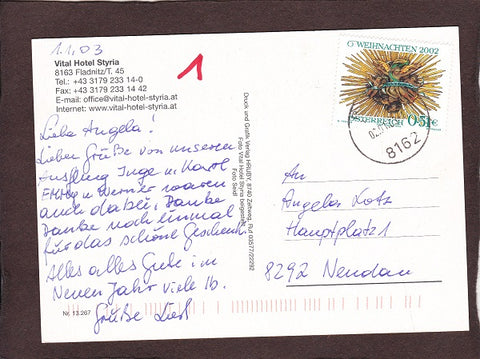 1.1.03
Vital Hotel Styria
8163 Fladnitz/T. 45
Tel.: +43 3179 233 14-0
Fax: +43 3179 233 14 42
E-mail: office@vital-hotel-styria.at
Internet: www.vital-hotel-styria.at
1
WEIHNACHTEN 2002
ÖSTERREICH 0,51€
8162
Liebe Angela!
Lieber Grüße von unserem
Ausflug Inge u Karol
u Werner waren
auch dabei, Danke
Danke noch einmal
für das schöne Geschenk
Alles alles Gute im
Neuen Jahr viele lb.
Grüße
Nr. 13.267
Foto Vital Hotel Styria beigestellt
An
Angela Lotz
Hauptplatz 1
8292 Neudau